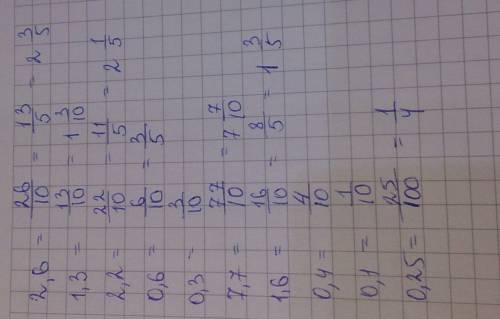 2,6 = 26/10 = 13/5 = 2 3/5
1,3 = 13/10 = 1 3/10
2,2 = 22/10 = 11/5 = 2 1/5
0,6 = 6/10 = 3/5
0,3 = 3/10
7,7 = 77/10 = 7 7/10
1,6 = 16/10 = 8/5 = 1 3/5
0,4 = 4/10
0,1 = 1/10
0,25 = 25/100 = 1/4